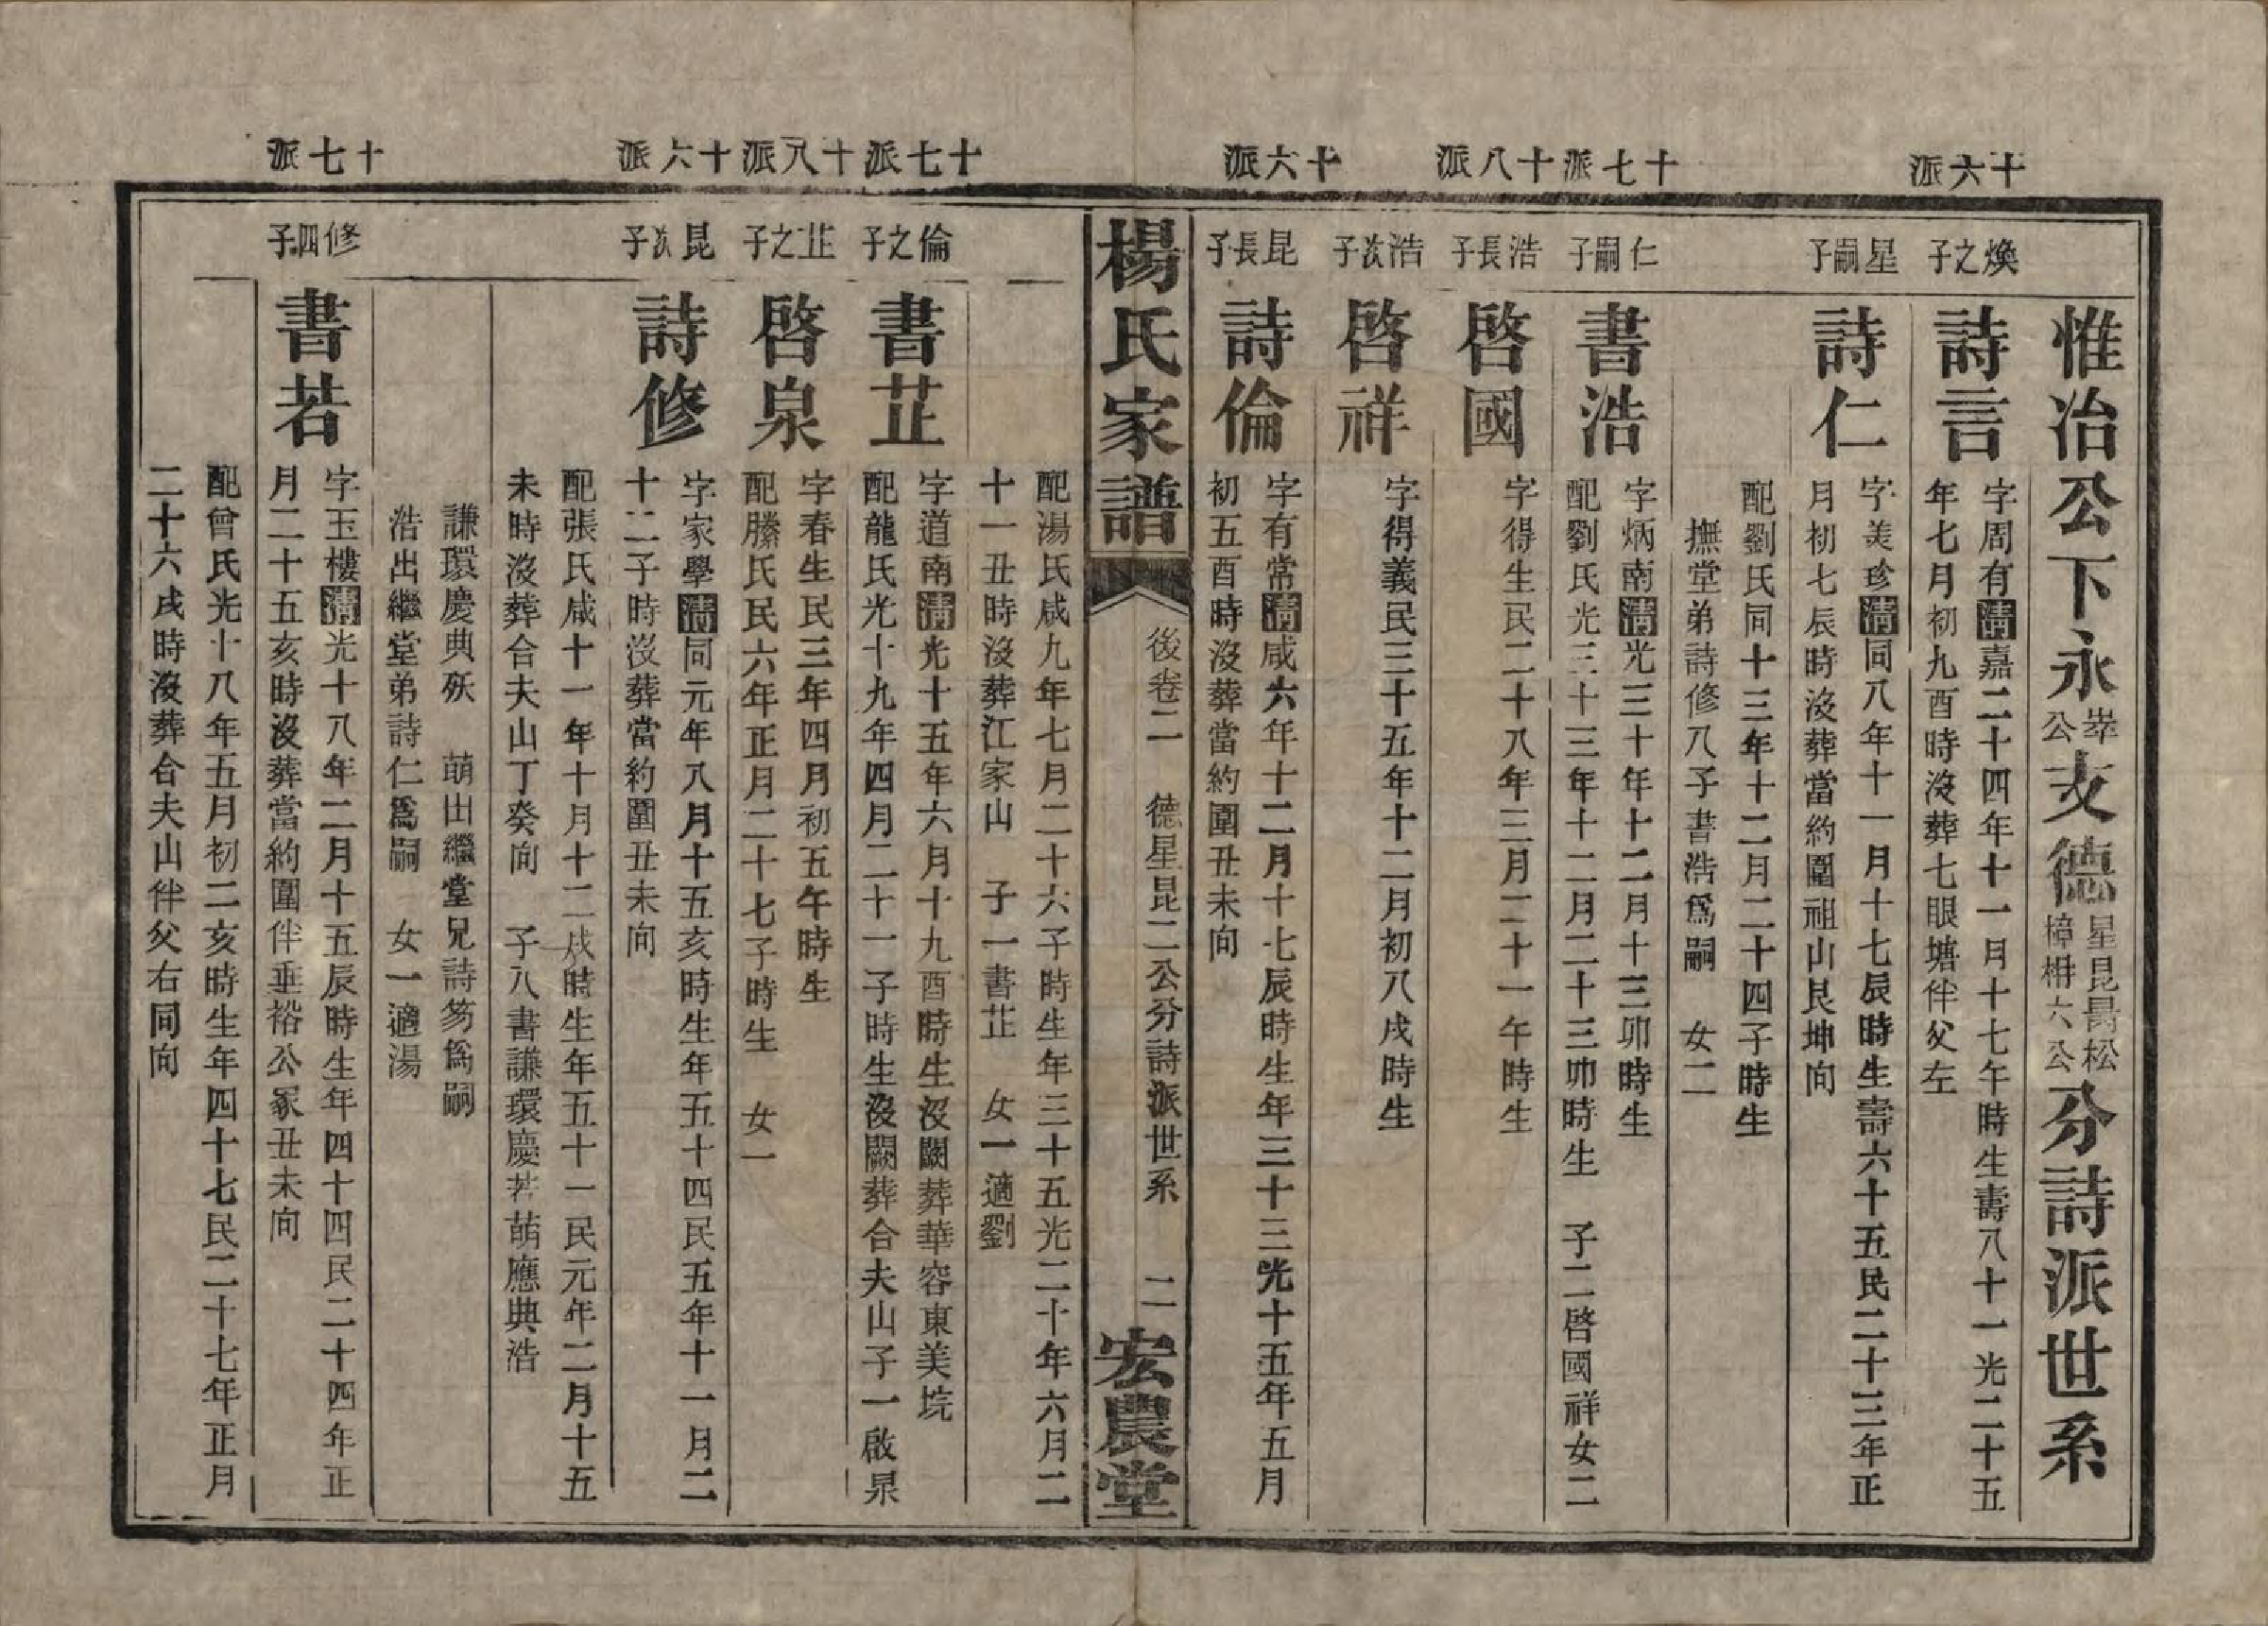 惟冶公下永崒公支德星昆昺松樟枏六公分詩派世系
十六派
煥之子
詩言
字周有清嘉二十四年十一月十七午時生壽八十一光二十五
年七月初九酉時沒葬七眼塘伴父左
星嗣子
詩仁
字美珍清同八年十一月十七辰時生壽六十五民二十三年正
月初七辰時沒葬當約圍祖山艮坤向
配劉氏同十三年十二月二十四子時生
撫堂弟詩修八子書浩爲嗣 女二
十七派
仁嗣子
書浩
字炳南清光三十年十二月十三卯時生
配劉氏光三十三年十二月二十三卯時生 子二啓國祥女二
十八派
浩長子
啓國
字得生民二十八年三月二十一午時生
浩次子
啓祥
字得義民三十五年十二月初八戌時生
十六派
昆長子
詩倫
字有常清咸六年十二月十七辰時生年三十三光十五年五月
初五酉時沒葬當約圍丑未向
楊氏家譜
後卷二 德星昆二公分詩派世系 二
宏農堂
配湯氏咸九年七月二十六子時生年三十五光二十年六月二
十一丑時沒葬江家山 子一書芷 女一適劉
十七派
倫之子
書芷
字道南清光十五年六月十九酉時生沒闕葬華容東美垸
配龍氏光十九年四月二十一子時生沒闕葬合夫山子一啟泉
十八派
芷之子
啓泉
字春生民三年四月初五午時生
配縢氏民六年正月二十七子時生 女一
十六派
昆次子
詩修
字家學清同元年八月十五亥時生年五十四民五年十一月二
十二子時沒葬當約圍丑未向
配張氏咸十一年十月十二戌時生年五十一民元年二月十五
未時沒葬合夫山丁癸向 子八書謙環慶若萌應典浩
謙環慶典殀 萌出繼堂兄詩笏爲嗣
浩出繼堂弟詩仁爲嗣 女一適湯
十七派
修四子
書若
字玉樓清光十八年二月十五辰時生年四十四民二十四年正
月二十五亥時沒葬當約圍伴垂裕公冢丑未向
配曾氏光十八年五月初二亥時生年四十七民二十七年正月
二十六戌時沒葬合夫山伴父右同向